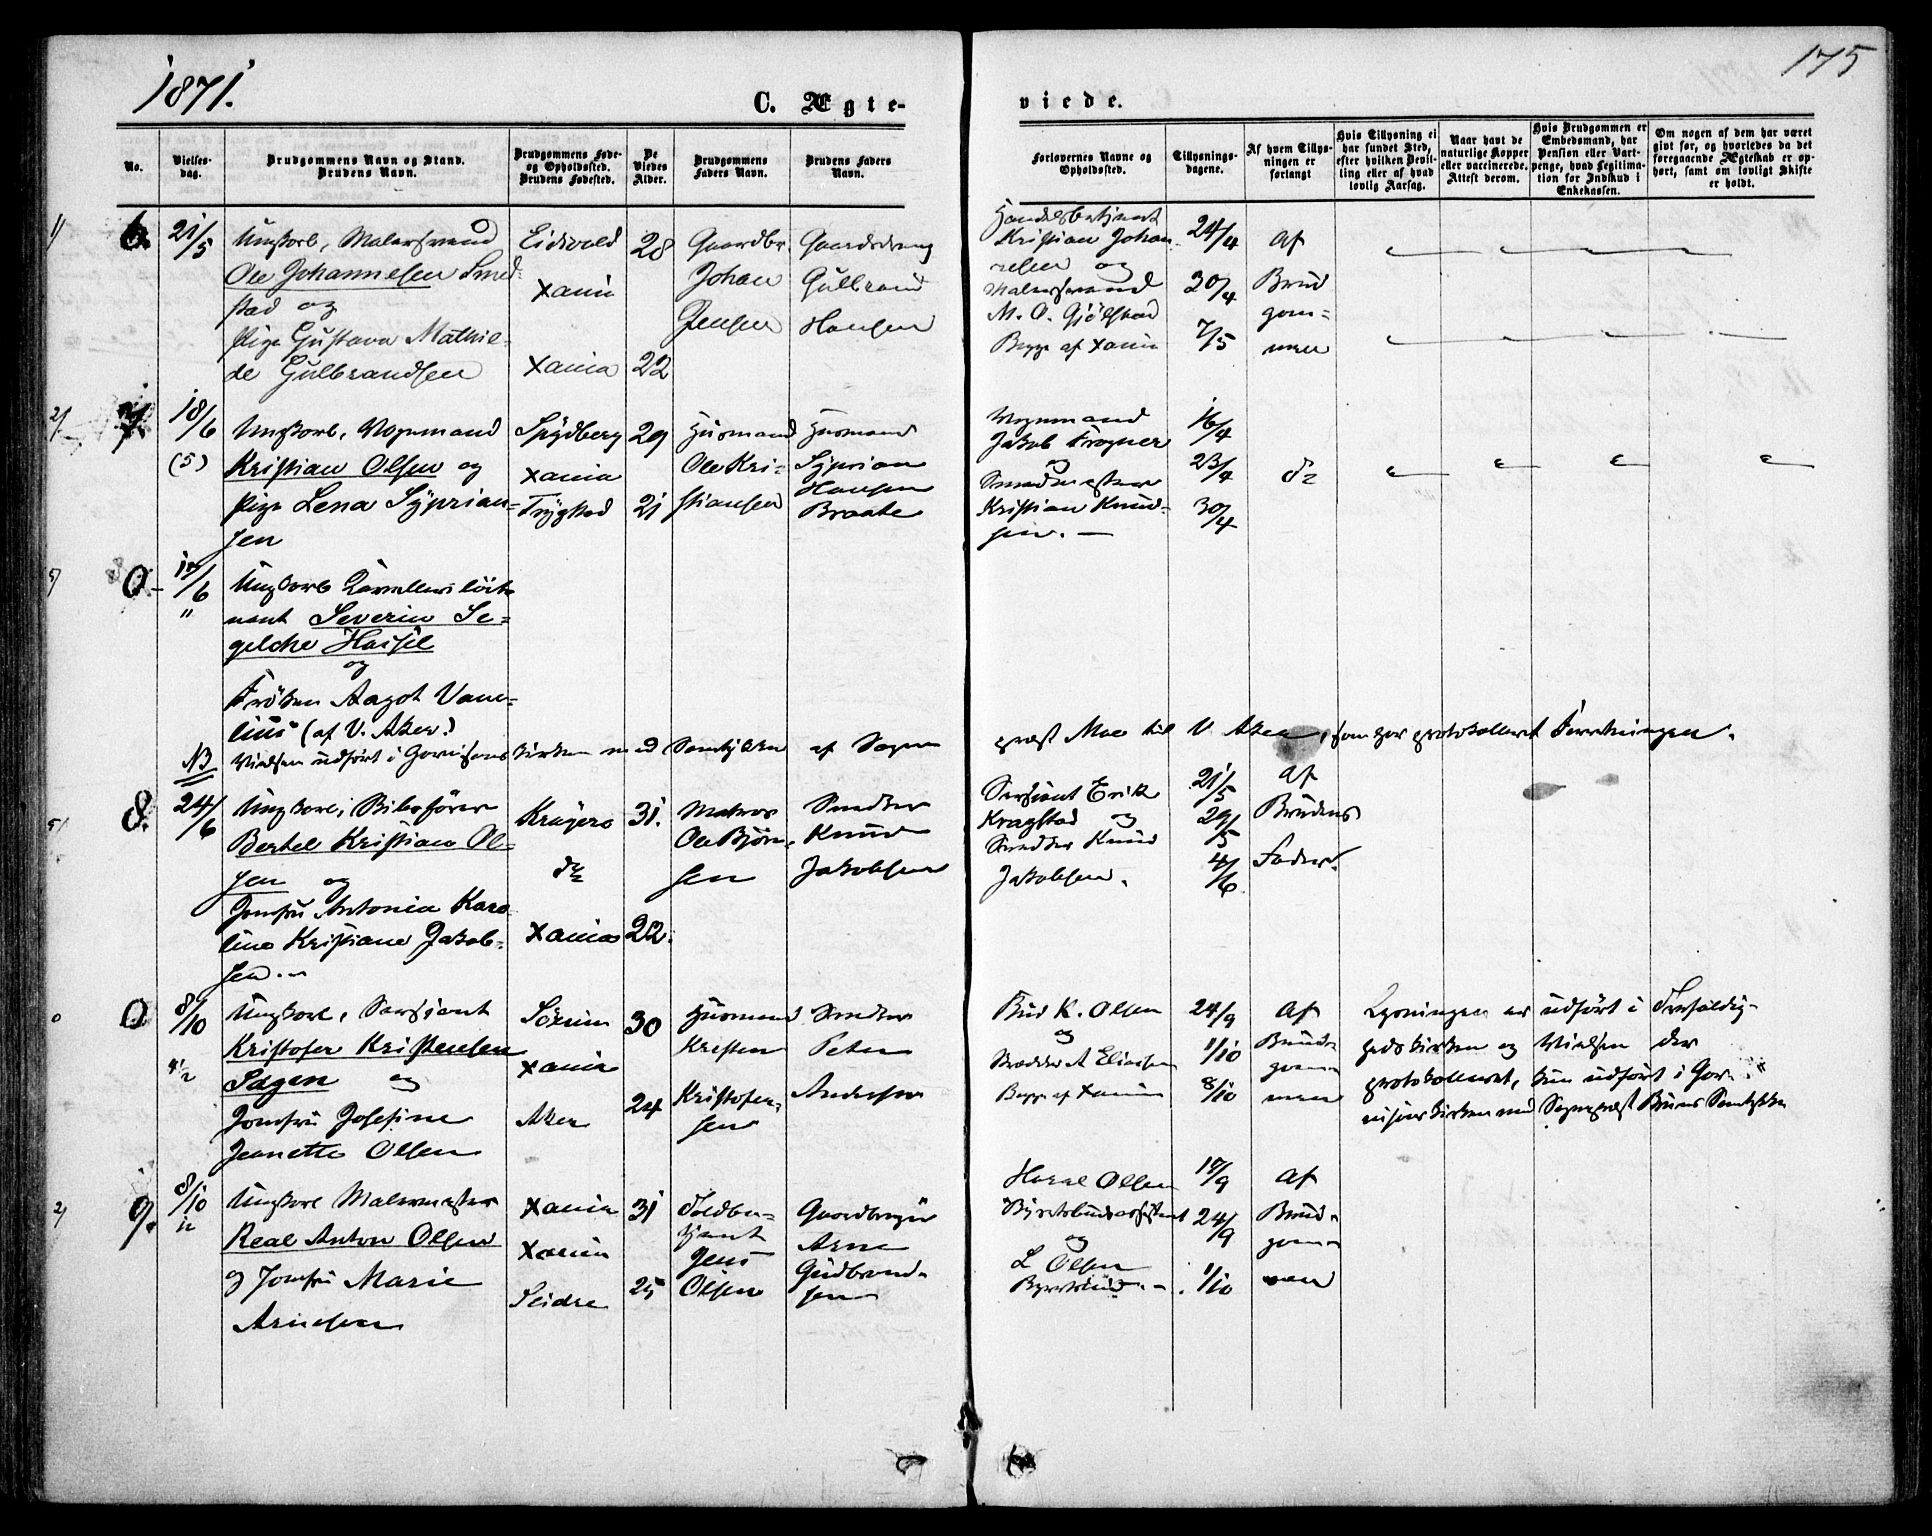 1871.
175
C. Ægte-
viede.
No.
Vielses-
dag.
Brudgommens Navn og Stand.
Brudens Navn.
Brudgommens Føde-
og Opholdssted.
Brudens Fødested.
De
Viedes
Alder.
Brudgommens
Faders Navn.
Brudens Faders
Navn.
Forlovernes Navne og
Opholdssted.
Tillysnings-
dagene.
Af hvem Tillys-
ningen er
forlangt
Hvis Tillysning ei
har fundet Sted,
efter hvilken Bevil-
ling eller af hvad
lovlig Aarsag.
Naar havt de
naturlige Kopper
eller vaccinerede.
Attest derom.
Hvis Brudgommen er
Embedsmand, har
Pension eller Vart-
penge, hvad Legitima-
tion for Indskud i
Enkekassen.
Om nogen af dem har været
givt før, og hvorledes da det
foregaaende Ægteskab er op-
hørt, samt om lovligt Skifte
er holdt.
6.
21/5
Ungkarl, Malersvend
Ole Johannesen Smed-
stad og
Pige Gustava Mathil-
de Gulbrandsen
Eidsvold
Xania
Xania
28
22
Gaardbr.
Johan
Jensen
Gaarddreng
Gulbrand
Hansen
Handelsbetjent
Kristian Johan-
nesen og
Malersvend
M. O. Gjölstad
Begge af Xania
24/4
30/4
7/5
af
Brud
gom=
men
7.
18/6
(5)
Ungkarl, Vognmand
Kristian Olsen og
Pige Lena Syprian=
sen
Spydberg
Xania
Trygstad
29
21
Husmand
Ole Kri-
stiansen
Husmand
Syprian
Hansen
Braate
Vognmand
Jakob Frogner
og
Smedmester
Kristian Knud-
sen. —
16/4
23/4
30/4
do
0.
/6
"
Ungkarl Kavalleriløit-
nant Severin Se=
gelcke Hassel
og
Fröken Aagot Vane=
lius (af V. Aker.)
NB
Vielsen udført i Garnisonskirken med Samtykke af Sogne
præst Moe til V Aker, som har protokolleret Forretningen.
8.
24/6
Ungkarl, Bibefører
Bertel Kristian Ol-
sen og
Jomfru Antonia Karo
line Kristiane Jakob-
sen.—
Kragerø
do
Xania
31.
22.
Matros
Ole Björn-
sen
Snedker
Knud
Jakobsen
Sersjant Erik
Kragstad og
Snedker Knud
Jakobsen.
21/5
29/5
4/6
af
Brudens
Fader.
0
8/10
4 1/2
Ungkarl, Sersjant
Kristofer Kristensen
Sagen og
Jomfru Josefine
Jeanette Olsen
Sörum
Xania
Aker
30
24
Husmand
Kristen
Kristofer-
sen
Snedker
Peter
Andersen
Bud K. Olsen
og
Snedker A Eliasen
Begge af Xania
24/9
1/10
8/10
af
Brud-
gom-
men
Lysningen er udført i Trefoldig-
hedskirken og Vielsen der
protokolleret, kun udført i Gar-
nisonskirken med Sognepræst Bruns Samtykke
9.
8/10
Ungkarl Malermester
Real Anton Olsen
og Jomfru Marie
Arnesen
Xania
Xania
Slidre
31
25
Toldbe-
tjent
Jens
Olsen
Gaardbruger
Arne
Gudbrand-
sen
Olsen
og
L Olsen
17/9
24/9
1/10
Af
Brud-
gom-
men